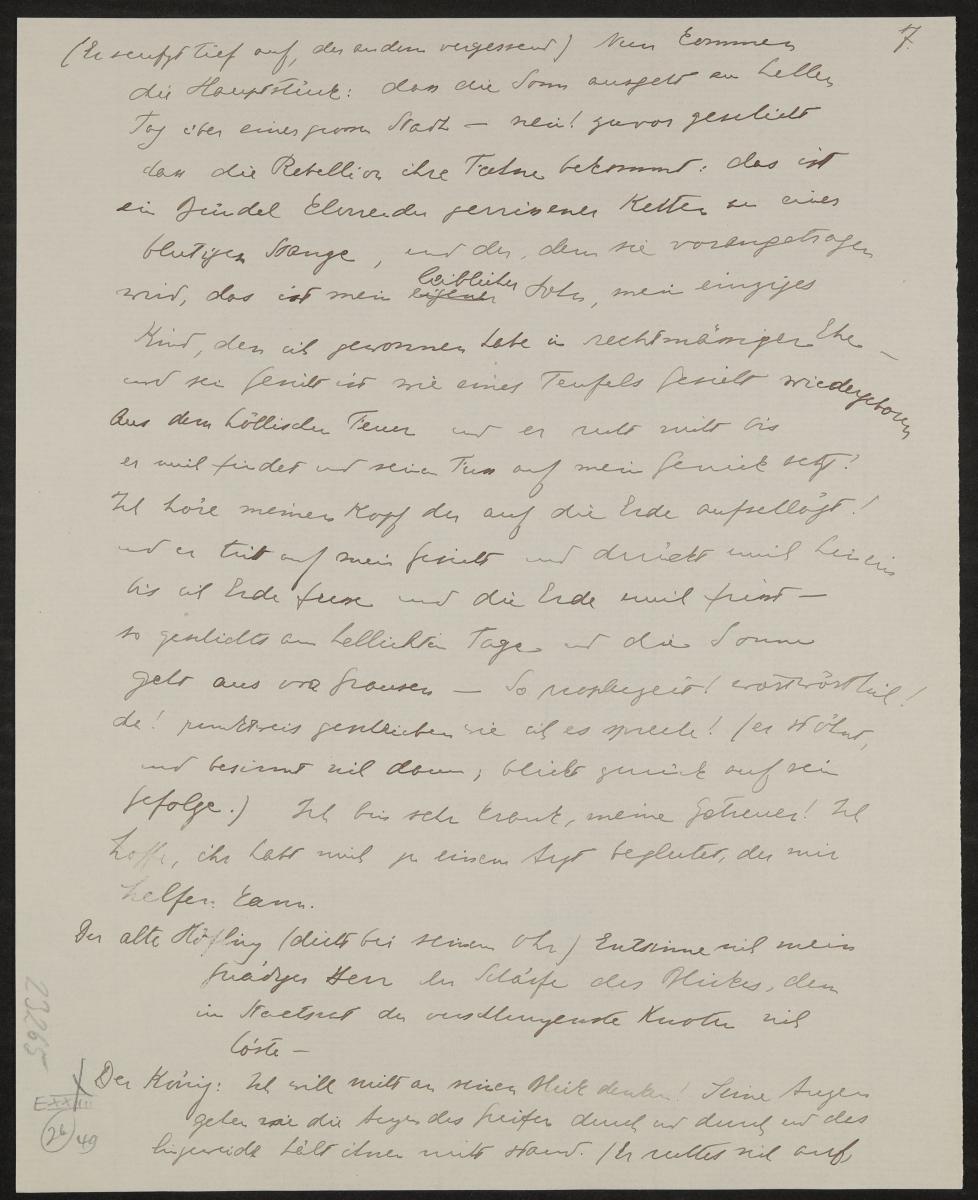 7.
(Er seufzt tief auf, der andern vergessend) Nun kommen
die Hauptstück: dass die Sonn ausgeht am hellen
Tag über einer grossen Stadt — nein! zuvor geschieht
dass die Rebellion ihre Fahne bekommt: das ist
ein Bündel klirrender zerrissener Ketten an einer
blutigen Stange, und der, dem sie vorangetragen
wird, das ist mein eigener leiblicher Sohn, mein einziges
Kind, den ich gewonnen habe in rechtmässiger Ehe —
und sein Gesicht ist wie eines Teufels Gesicht wiedergeboren
aus dem höllischen Feuer und er ruht nicht bis
er mich findet und seinen Fuss auf mein Genick setzt!
Ich höre meinen Kopf der auf die Erde aufschlägt!
und er tritt auf mein Gesicht und drückt mich hinein
bis ich Erde fresse und die Erde mich frisst —
so geschiehts am hellichten Tage und die Sonne
geht aus vor Grausen — So prophezeit! wortwörtlich!
da! punktweis geschrieben wie ich es spreche! (er stöhnt,
und besinnt sich dann, blickt zurück auf sein
Gefolge.) Ich bin sehr krank, meine Getreuen! Ich
hoffe, ihr habt mich zu einem Arzt begleitet, der mir
helfen kann.
Der alte Höfling (dicht bei seinem Ohr) Entsinne sich mein
gnädiger Herr der Schärfe des Blickes, dem
im Staatsrat der verschlungenste Knoten sich
löste —
Der König: Ich will nicht an seinen Blick denken! Seine Augen
gehen wie die Augen des Greifen durch und durch und das
Eingeweide hält ihnen nicht stand. (Er richtet sich auf,
23265
E XXIII
26
49